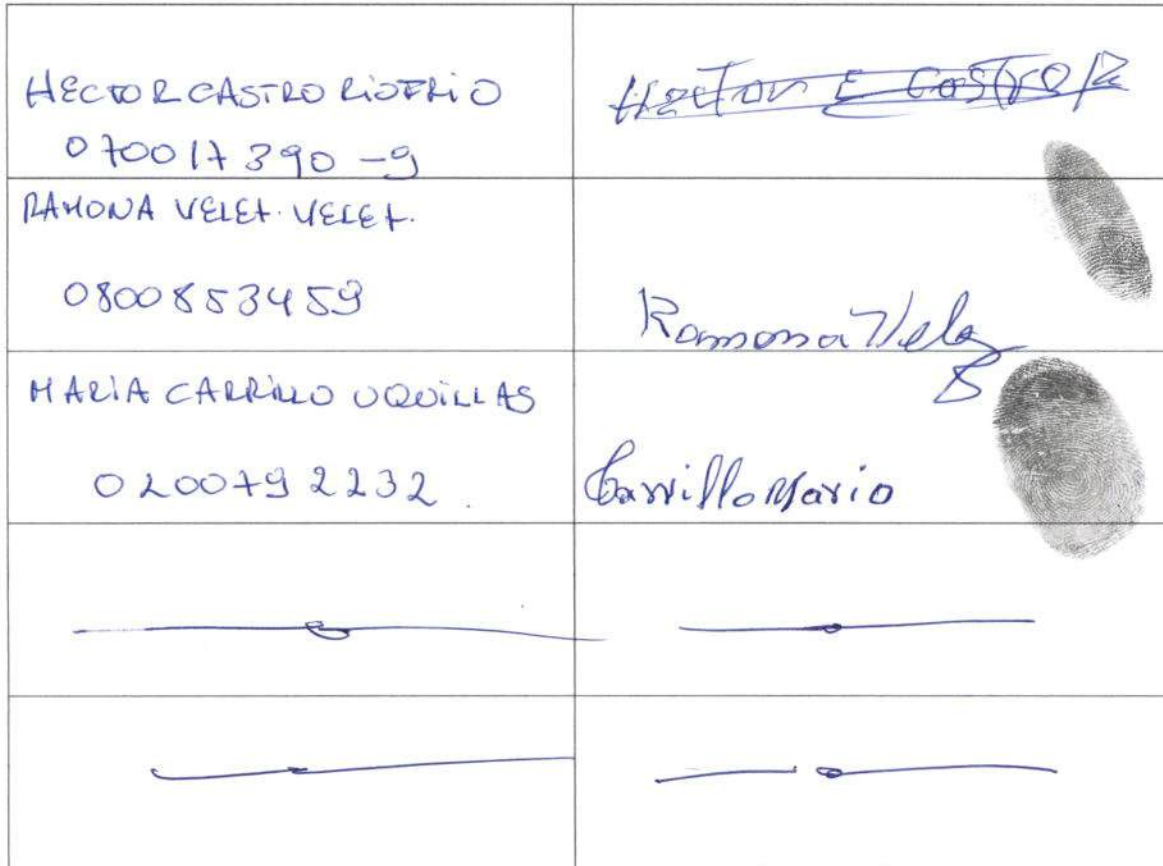 HECTOR CASTRO RIOFRIO
Hector E Castro R
070017390-9
RAMONA VELEZ. VELEZ.
0800853459
Ramona Velez
MARIA CARRILLO UQUILLAS
0200792232.
Carrillo Maria